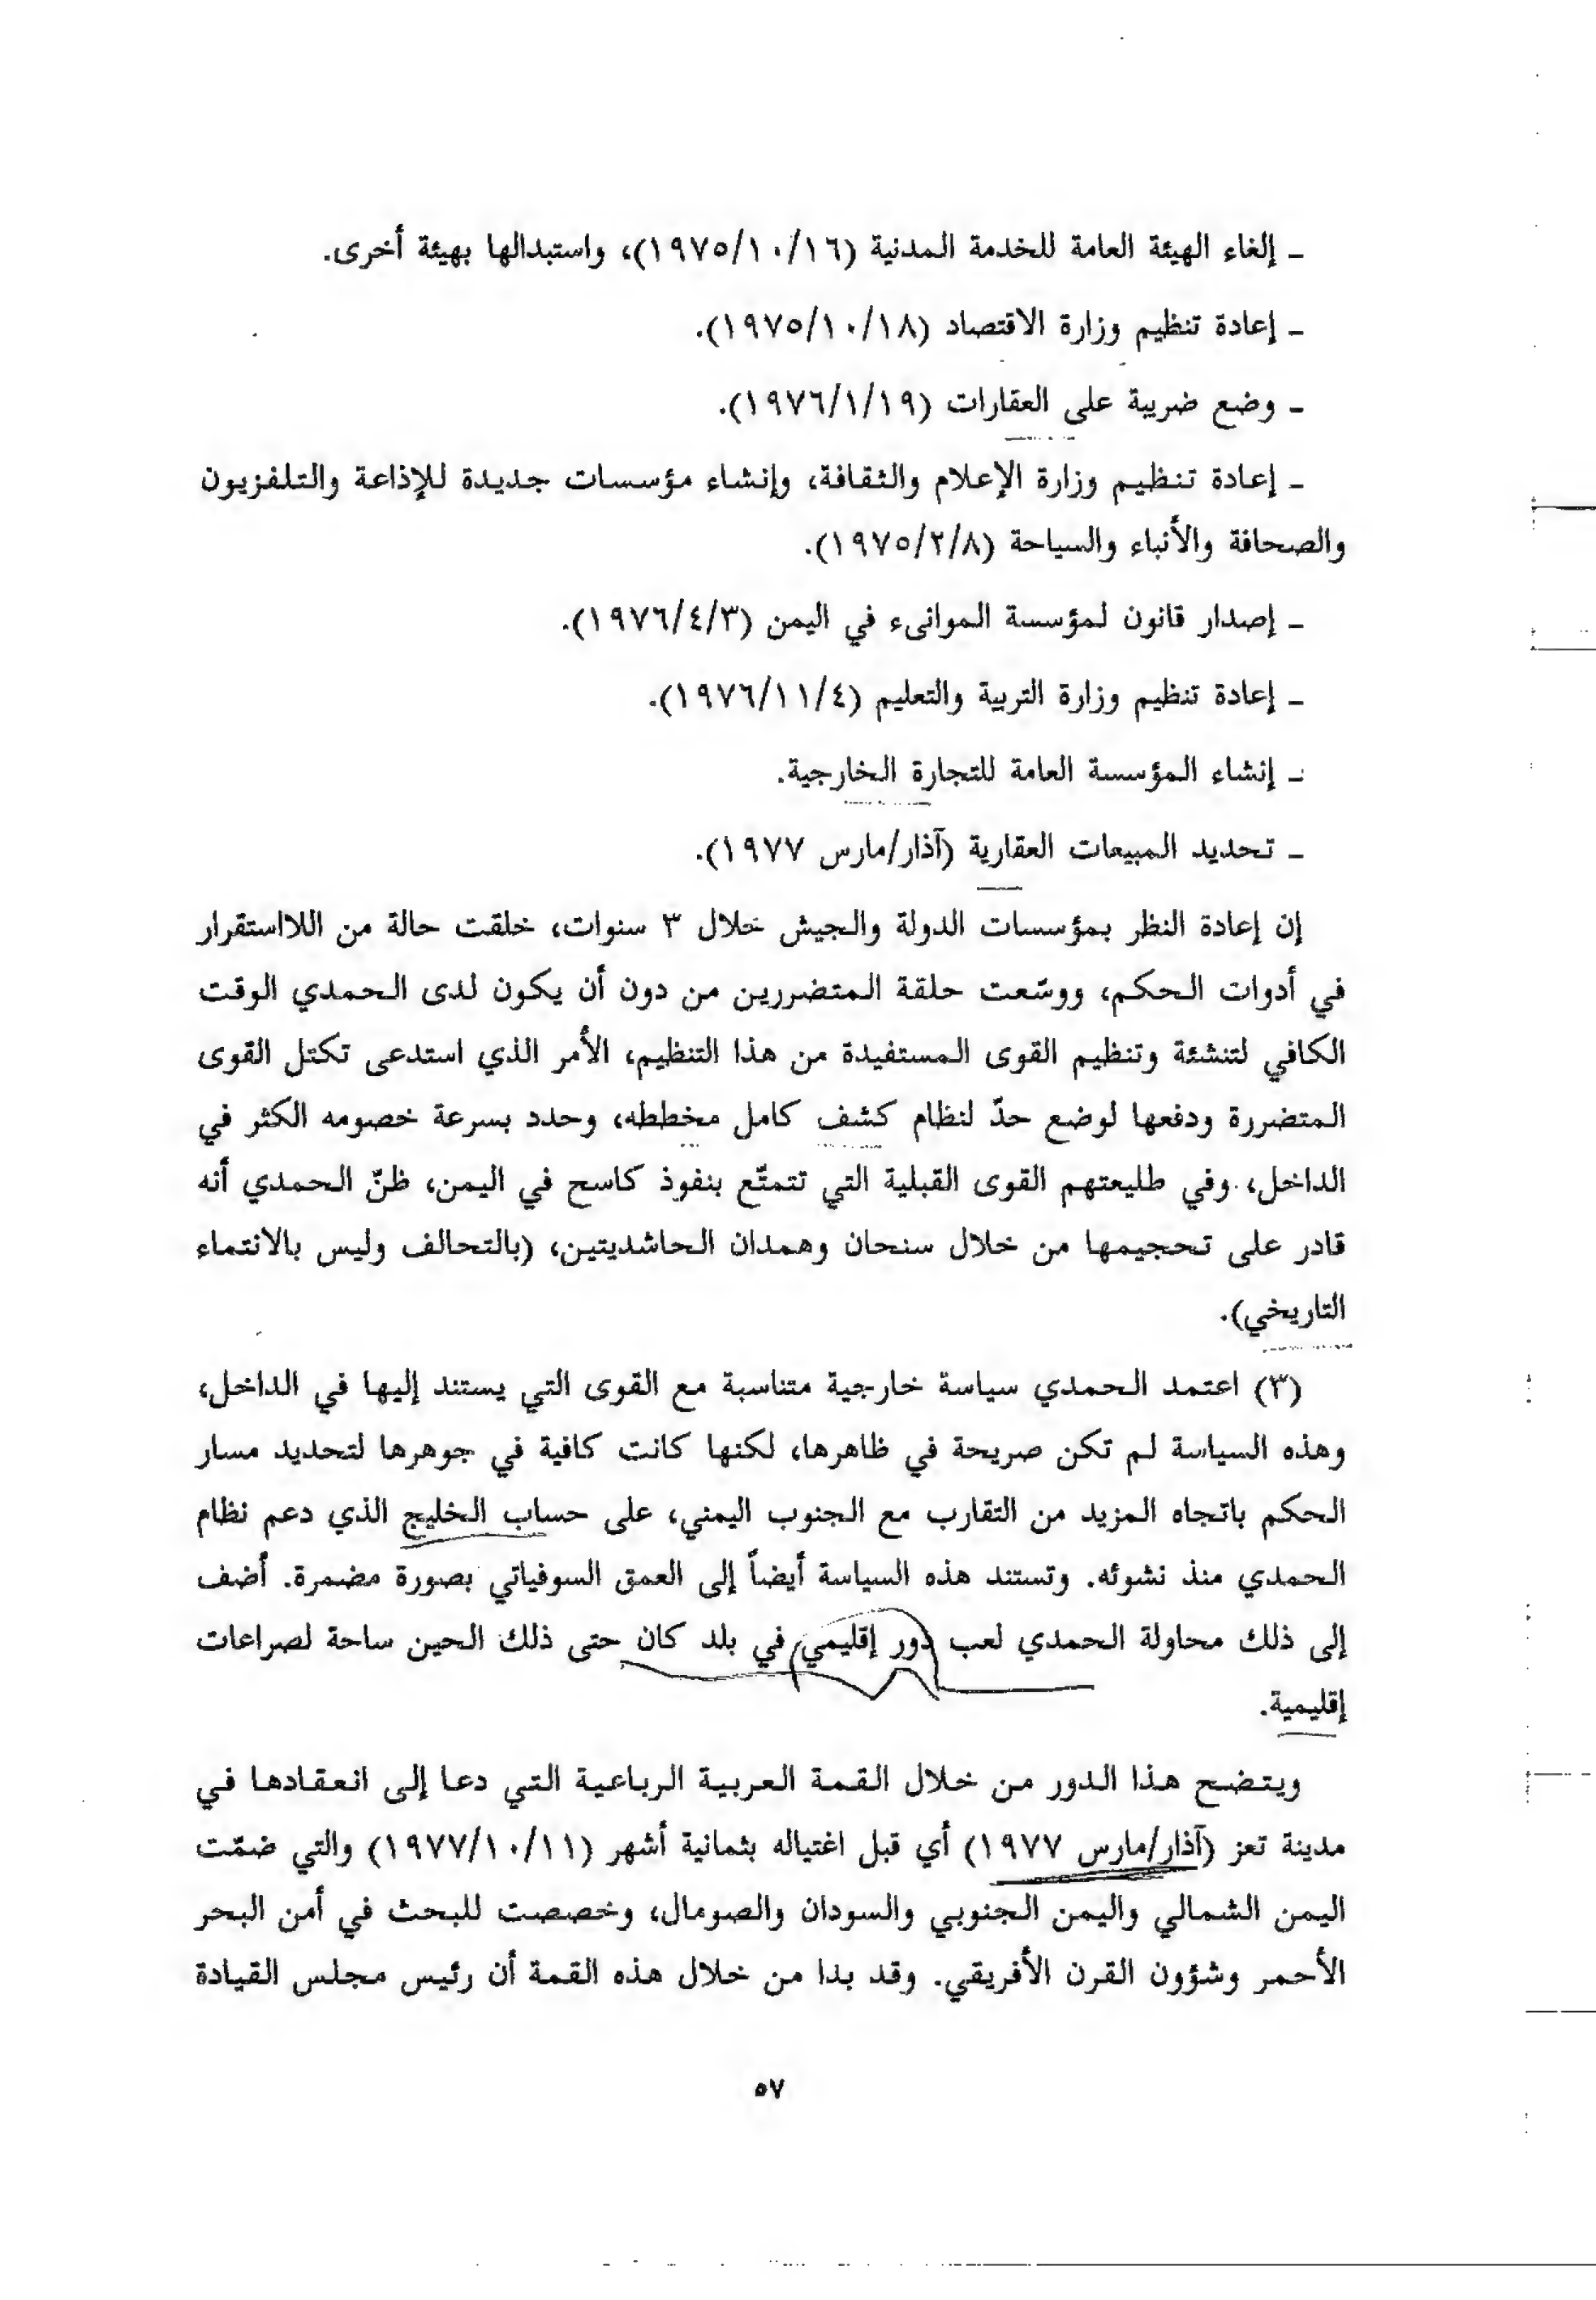 ـ إلغاء الهيئة العامة للخدمة المدنية (١٩٧٥/١٠/١٦)، واستبدالها بهيئة أخرى.
ـ إعادة تنظيم وزارة الاقتصاد (١٩٧٥/١٠/١٨).
ـ وضع ضريبة على العقارات (١٩٧٦/١/١٩).
ـ إعادة تنظيم وزارة الإعلام والثقافة، وإنشاء مؤسسات جديدة للإذاعة والتلفزيون
والصحافة والأنباء والسياحة (١٩٧٥/٢/٨).
ـ إصدار قانون لمؤسسة الموانىء في اليمن (١٩٧٦/٤/٣).
ـ إعادة تنظيم وزارة التربية والتعليم (١٩٧٦/١١/٤).
ـ إنشاء المؤسسة العامة للتجارة الخارجية.
ـ تحديد المبيعات العقارية (آذار/مارس ١٩٧٧).
إن إعادة النظر بمؤسسات الدولة والجيش خلال ٣ سنوات، خلقت حالة من اللااستقرار
في أدوات الحكم، ووسّعت حلقة المتضررين من دون أن يكون لدى الحمدي الوقت
الكافي لتنشئة وتنظيم القوى المستفيدة من هذا التنظيم، الأمر الذي استدعى تكتل القوى
المتضررة ودفعها لوضع حدّ لنظام كشف كامل مخططه، وحدد بسرعة خصومه الكثر في
الداخل، وفي طليعتهم القوى القبلية التي تتمتّع بنفوذ كاسح في اليمن، ظنّ الحمدي أنه
قادر على تحجيمها من خلال سنحان وهمدان الحاشديتين، (بالتحالف وليس بالانتماء
التاريخي).
(٣) اعتمد الحمدي سياسة خارجية متناسبة مع القوى التي يستند إليها في الداخل،
وهذه السياسة لم تكن صريحة في ظاهرها، لكنها كانت كافية في جوهرها لتحديد مسار
الحكم باتجاه المزيد من التقارب مع الجنوب اليمني، على حساب الخليج الذي دعم نظام
الحمدي منذ نشوئه. وتستند هذه السياسة أيضاً إلى العمق السوفياتي بصورة مضمرة. أضف
إلى ذلك محاولة الحمدي لعب دور إقليمي في بلد كان حتى ذلك الحين ساحة لصراعات
إقليمية.
ويتضح هذا الدور من خلال القمة العربية الرباعية التي دعا إلى انعقادها في
مدينة تعز (آذار/مارس ١٩٧٧) أي قبل اغتياله بثمانية أشهر (١٩٧٧/١٠/١١) والتي ضمّت
اليمن الشمالي واليمن الجنوبي والسودان والصومال، وخصصت للبحث في أمن البحر
الأحمر وشؤون القرن الأفريقي. وقد بدا من خلال هذه القمة أن رئيس مجلس القيادة
٥٧